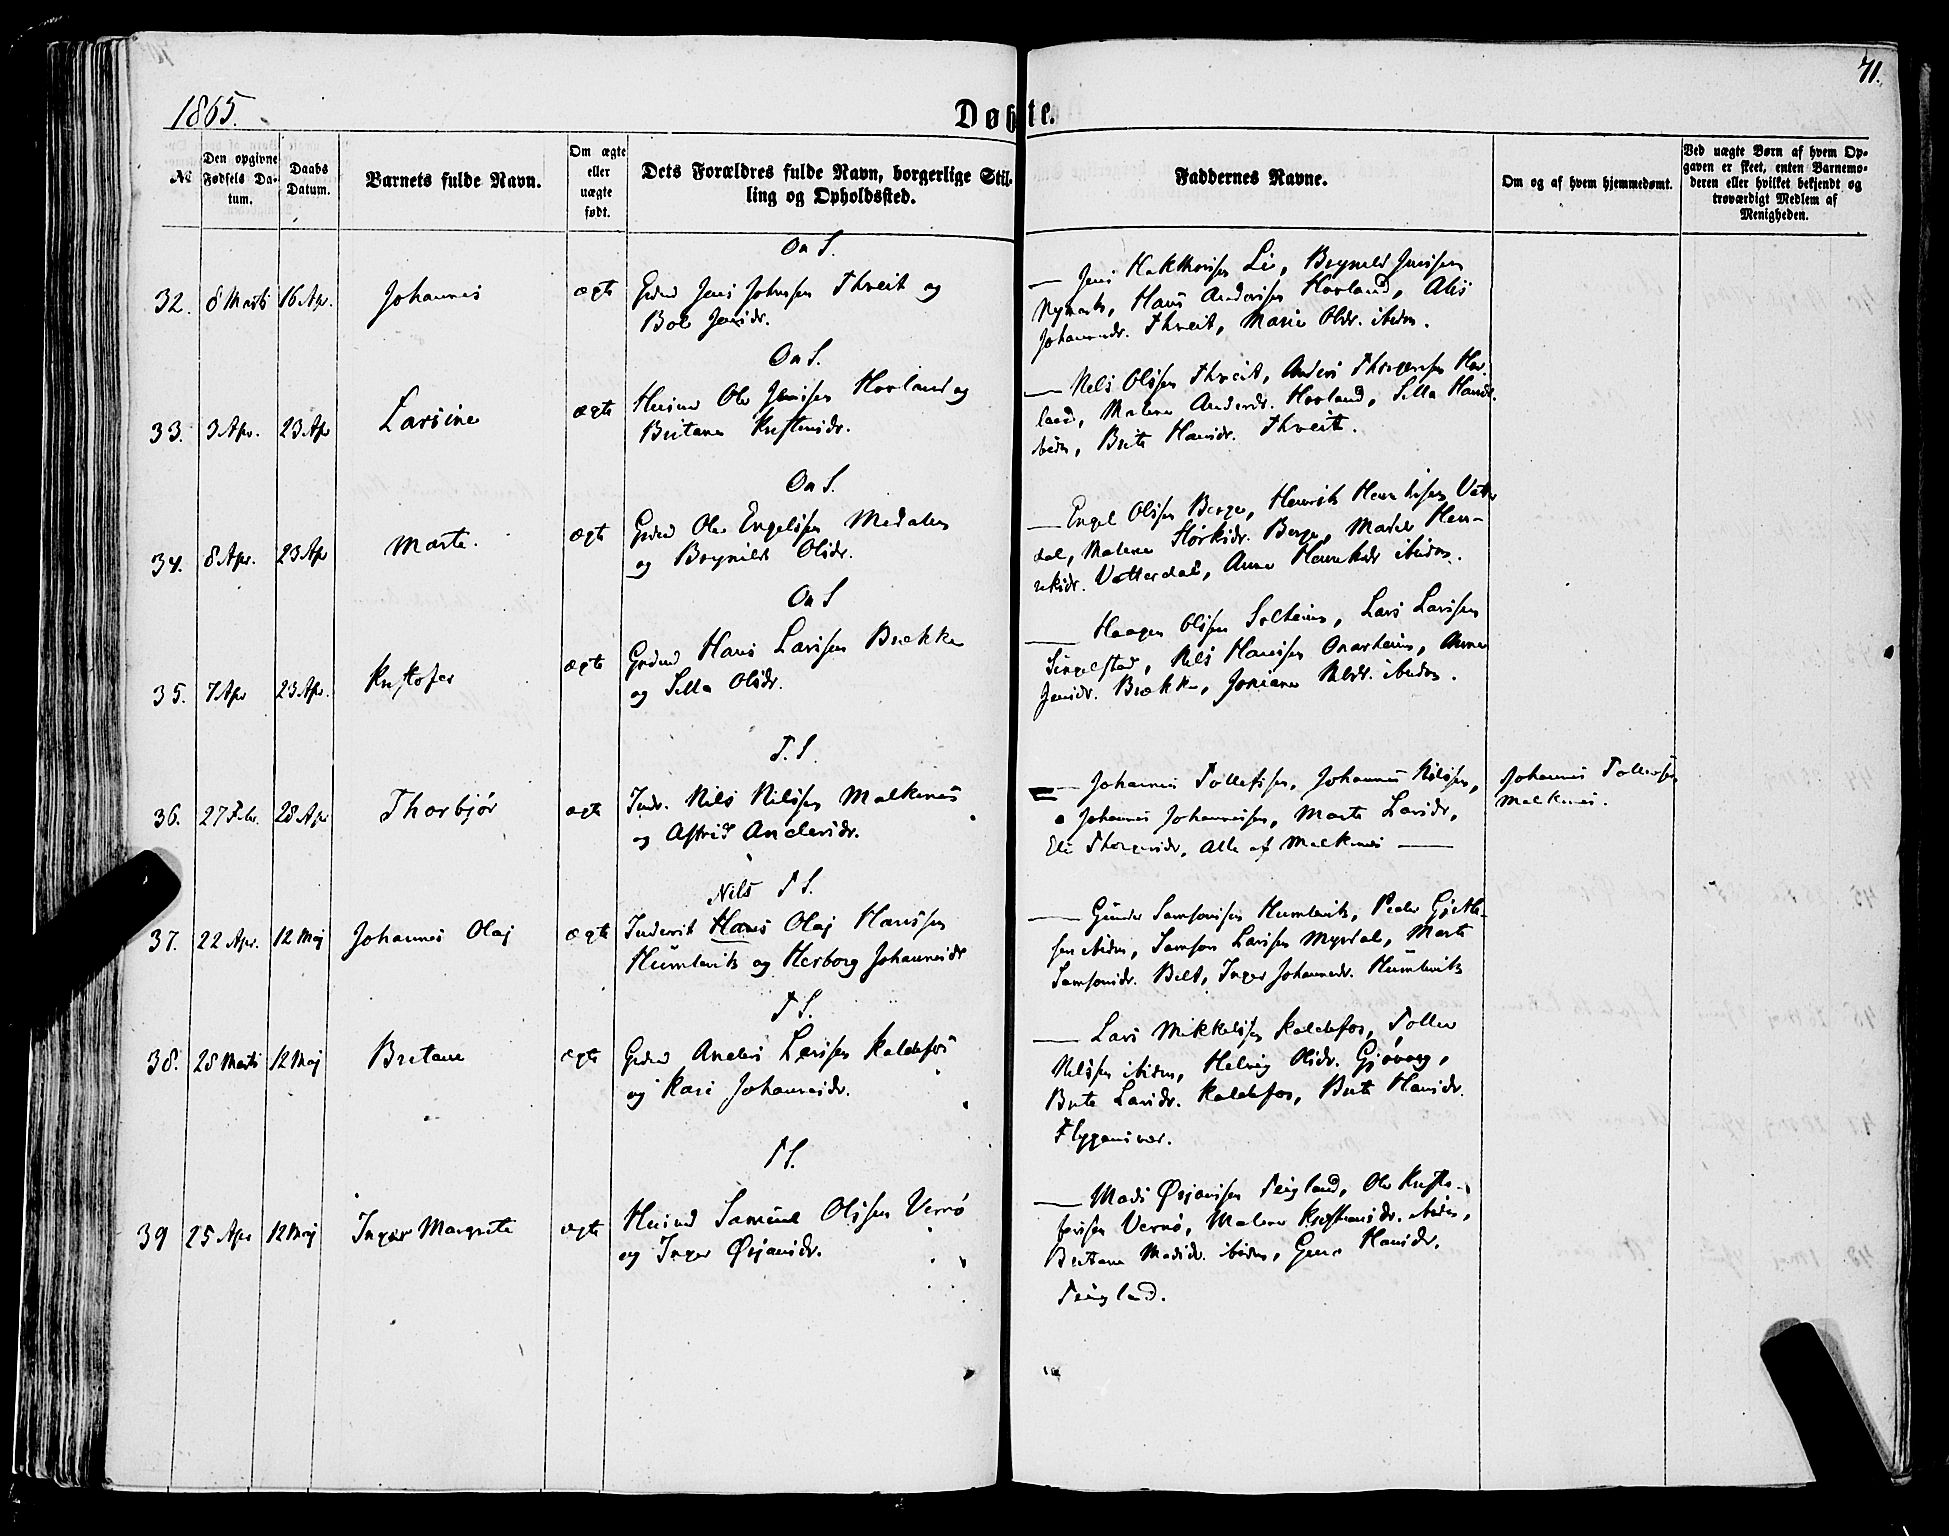 71.
1865.
Døbte.
№
Den opgivne Fødsels Datum.
Daabs Datum.
Barnets fulde Navn.
Om ægte eller uægte født.
Dets Forældres fulde Navn, borgerlige Stilling og Opholdssted.
Faddernes Navne.
Om og af hvem hjemmedømt.
Ved uægte Børn af hvem Opgaven er skeet, enten Barnemoderen eller hvilket bekjendt og troværdigt Medlem af Menigheden.
On S.
32. 8 Marts 16 Ap. Johannes ægte Grdmd Jens Johnsen Thveit og
Bol Jensdr.
— Jens Hakthorsen Lie, Brynild Jensen
Nymark, Hans Andersen Hovland, Alis
Johannesdr. Thveit, Marie Olsdr. ibidm.
On S.
33. 3 Apr. 23 Ap Larsine ægte Husmd Ole Jensen Hovland og
Britane Kristensdr.
— Nels Olssen Thveit, Anders Thorgersen Hov-
land, Malene Andersdr. Hovland, Sella Hansdr.
ibidm, Brite Hansdr. Thveit.
On S.
34. 8 Apr. 23 Ap Marte. ægte Grdmd Ole Engelssen Medalen
og Brynild Olsdr.
— Engel Olssen Berge, Henrik Henriksen Vatter
dal, Malene Størksdr. Berge, Marte Hen-
riksdr. Vatterdal, Anne Henriksdr ibidm.
On S
35. 7 Apr 23 Apr. Kristofer ægte Grdmd Hans Larssen Brekke
og Sella Olsdr.
— Haagen Olssen Solheim, Lars Larssen
Singelstad, Nels Hanssen Onarheim, Anne
Jensdr. Brække, Joniane Nilsdr. ibidm.
T. S.
36. 27 Febr. 28 Apr Thorbjør ægte Indr. Nils Nilssen Malkenes
og Astrid Andersdr.
— Johannes Tollefssen, Johannes Nilssen,
Johannes Johannessen, Marte Larsdr,
Eli Thorgersdr, Alle af Malkenes —
Johannes Tollefsen
Malkenes.
Nils T S.
37. 22 Apr. 12 Maj Johannes Olaj ægte Inderst Hans Olaj Hanssen
Humlevik og Herborg Johannesdr
— Gunder Samsonssen Humlevik, Peder Gjertsen
ibidm, Samson Larssen Myrdal, Marte
Samsonsdr. Belt, Inger Johannesdr. Humlevik
T S.
38. 28 Marts 12 Maj Britane ægte Grdmd Anders Larssen Kaldefos
og Kari Johannesdr.
— Lars Mikkelssen Kaldefos, Tollev
Nelssen ibidm, Helvig Olsdr. Gjøvaag,
Brite Larsdr. Kaldefos, Brite Hansdr.
Flygansvær.
T S.
39 25 Apr 12 Maj Inger Margrete ægte Husmd Samuel Olssen Vernø
og Inger Ørjansdr.
— Mads Ørjanssen Teigland, Ole Kristo-
fersen Vernø, Malene Kristensdr. ibidm,
Britane Madsdr. ibidm, Guro Hansdr.
Teigland.